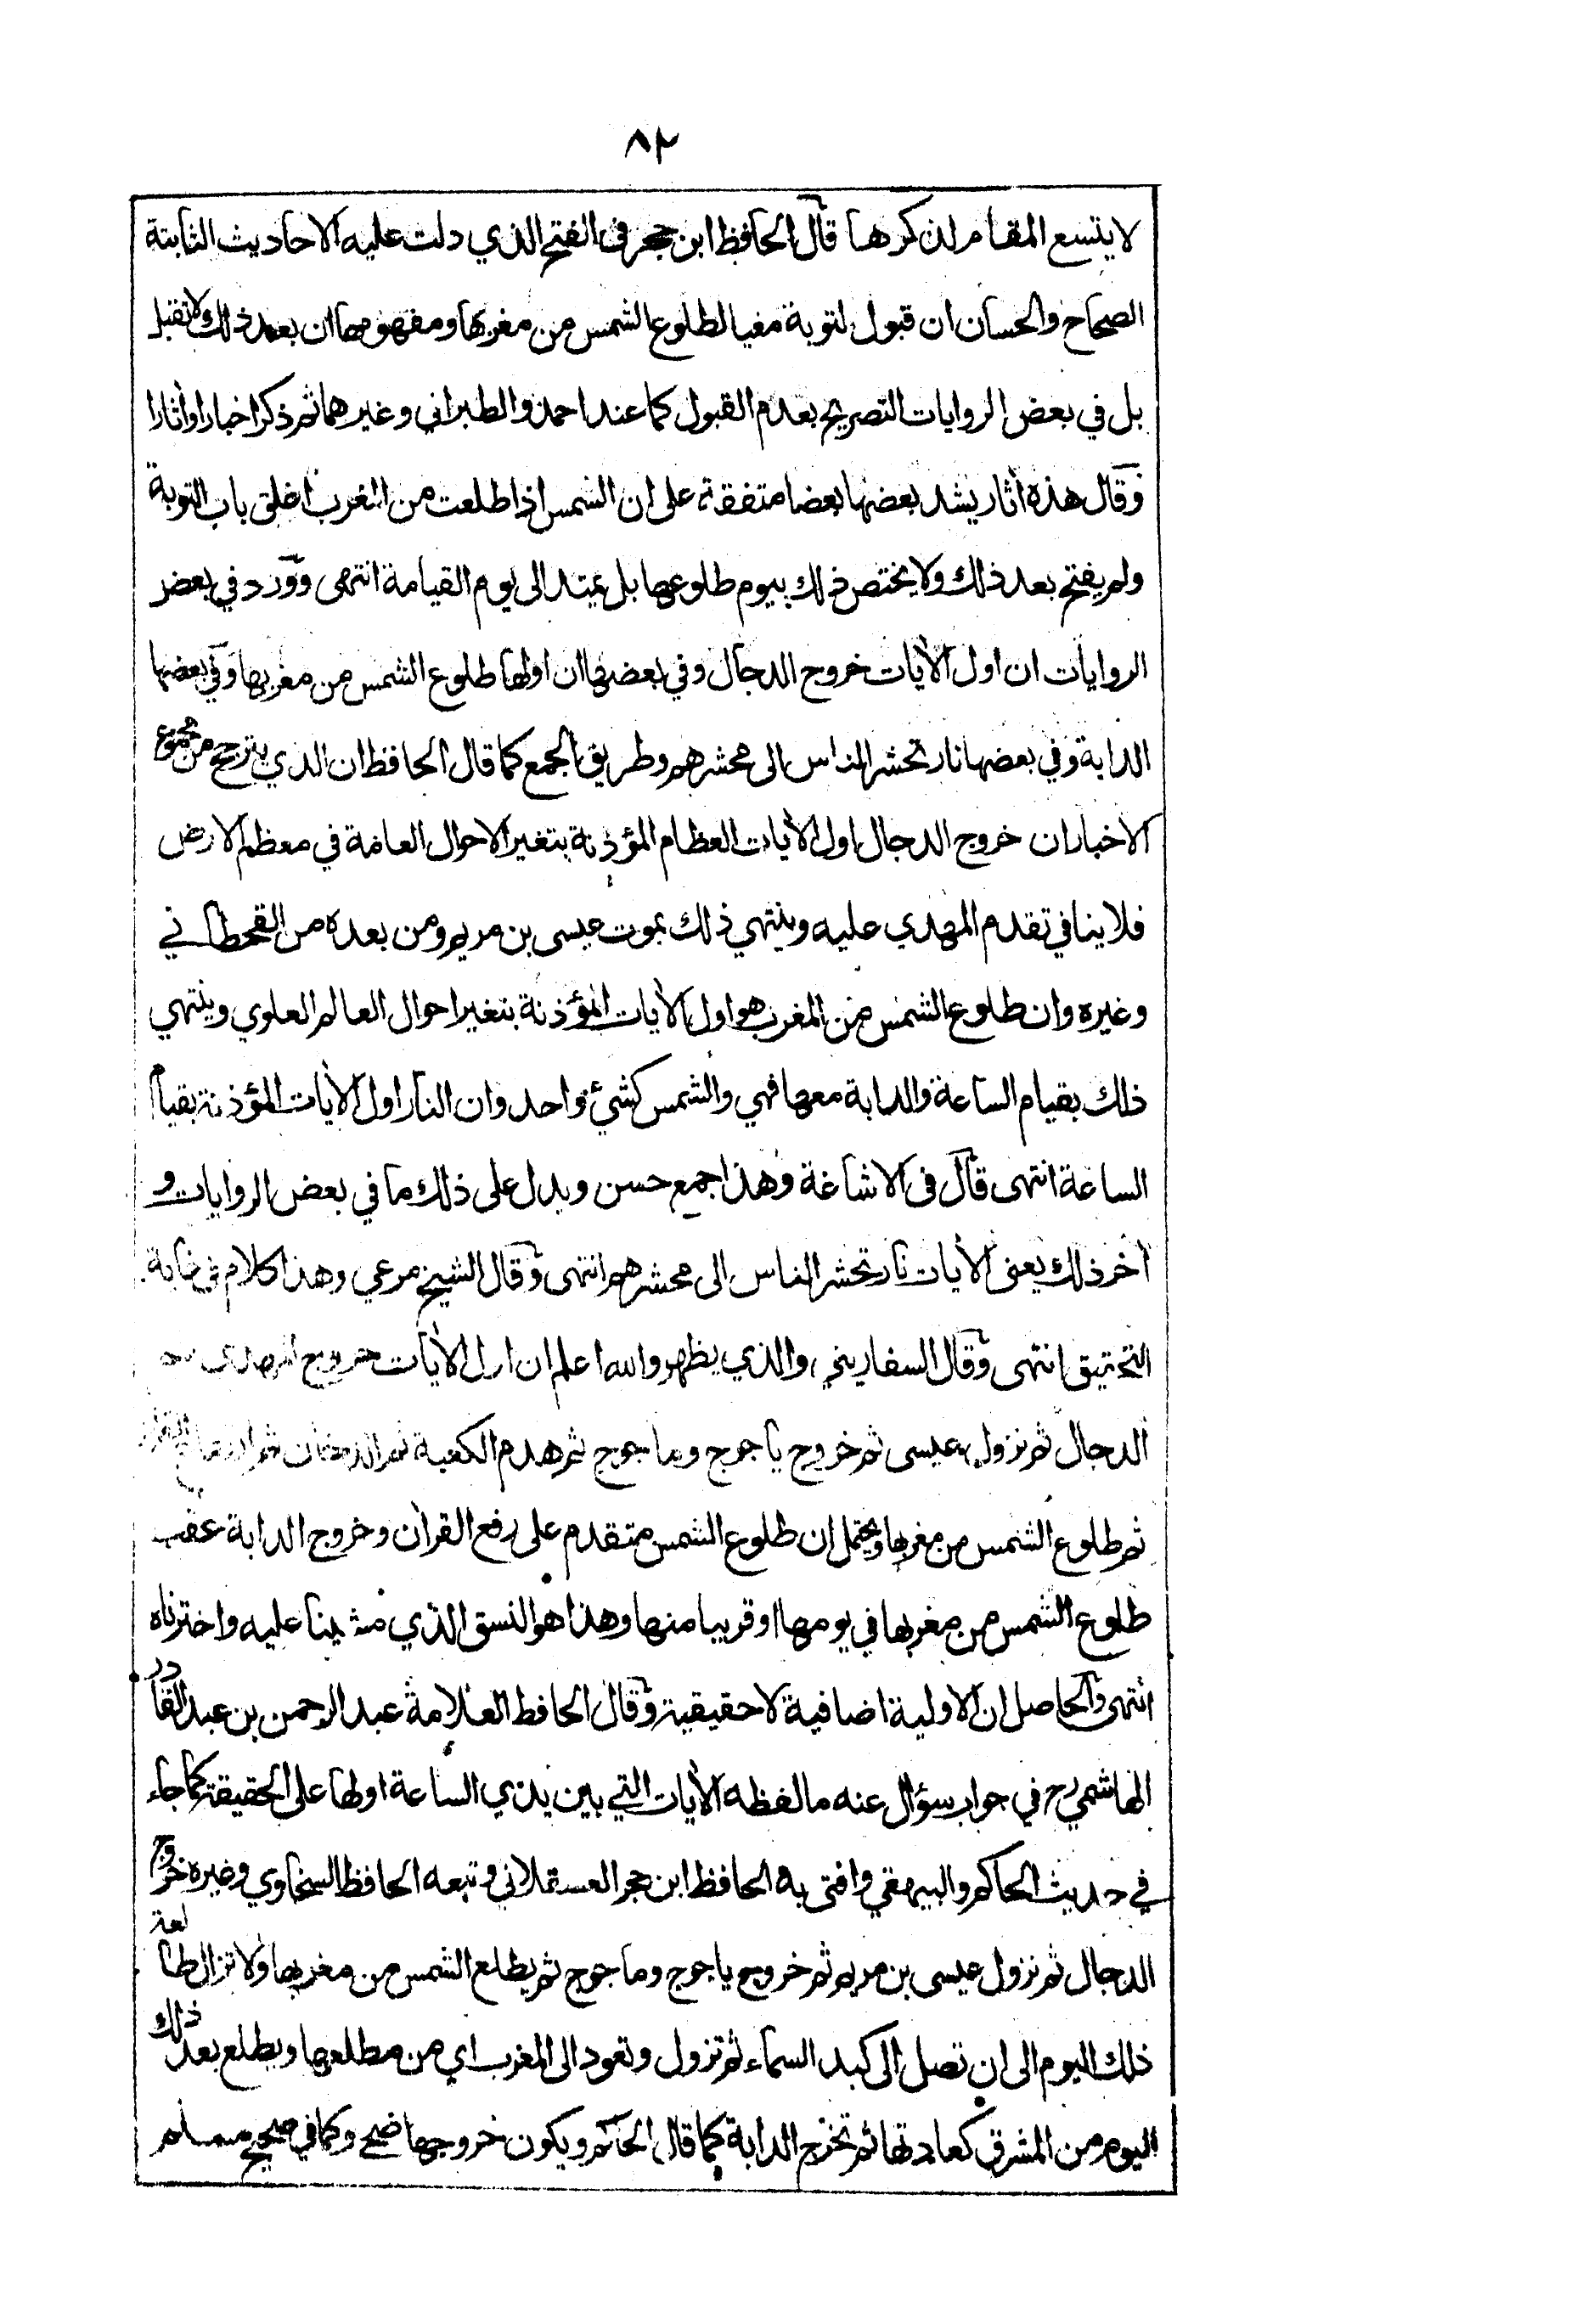 ٨٢
لا يتسع المقام لذكرها قال الحافظ ابن حجر فى الفتح الذي دلت عليه الاحاديث الثابتة
الصحاح والحسان ان قبول لتوبة مغيا لطلوع الشمس من مغربها ومفهومها ان بعد ذلك ولا تقبل
بل في بعض الروايات التصريح بعدم القبول كما عند احمد والطبراني وغيرهما ثم ذكر اخبارا واٰثارا
وقال هذه اٰثار يشد بعضها بعضا متفقة على ان الشمس اذا طلعت من المغرب اغلق باب التوبة
ولم يفتح بعد ذلك ولا يختص ذلك بيوم طلوعها بل يمتد الى يوم القيامة انتهى وورد في بعض
الروايات ان اول الاٰيات خروج الدجال وفي بعضها ان اولها طلوع الشمس من مغربها وفي بعضها
الدابة وفي بعضها نار تحشر الناس الى محشرهم وطريق الجمع كما قال الحافظ ان الذي يترجح من مجموع
الاخبار ان خروج الدجال اول الاٰيات العظام المؤذنة بتغير الاحوال العامة في معظم الارض
فلا ينافي تقدم المهدي عليه وينتهي ذلك بموت عيسى بن مريم ومن بعده من القحطاني
وغيره وان طلوع الشمس من المغرب هو اول الاٰيات المؤذنة بتغير احوال العالم العلوي وينتهي
ذلك بقيام الساعة والدابة معها فهي والشمس كشئ واحد وان النار اول الاٰيات المؤذنة بقيام
الساعة انتهى قال فى الاشاعة وهذا جمع حسن ويدل على ذلك ما في بعض الروايات و
اٰخر ذلك يعنى الاٰيات نار تحشر الناس الى محشرهم انتهى وقال الشيخ مرعي وهذا كلام في غاية
التحقيق انتهى وقال السفاريني والذي يظهر والله اعلم ان اول الاٰيات خروج المهدى
الدجال ثم نزول عيسى ثم خروج ياجوج وماجوج ثم هدم الكعبة ثم الدخان ثم
ثم طلوع الشمس من مغربها ويحتمل ان طلوع الشمس متقدم على رفع القراٰن وخروج الدابة عقب
طلوع الشمس من مغربها في يومها او قريبا منها وهذا هو النسق الذي مشينا عليه واخترناه
انتهى والحاصل ان الاولية اضافية لا حقيقية وقال الحافظ العلامة عبد الرحمن بن عبد القادر
الهاشمي رح في جواب سؤال عنه ما لفظه الاٰيات التي بين يدي الساعة اولها على الحقيقة كما جاء
في حديث الحاكم والبيهقي وافتى به الحافظ ابن حجر العسقلاني وتبعه الحافظ السخاوي وغيره خروج
الدجال ثم نزول عيسى بن مريم ثم خروج ياجوج وماجوج ثم يطلع الشمس من مغربها ولا تزال طالعة
ذلك اليوم الى ان تصل الى كبد السماء ثم تزول وتعود الى المغرب اي من مطلعها ويطلع بعد ذلك
اليوم من المشرق كعادتها ثم تخرج الدابة كما قال الحاكم ويكون خروجها ضحى وكما في صحيح مسلم